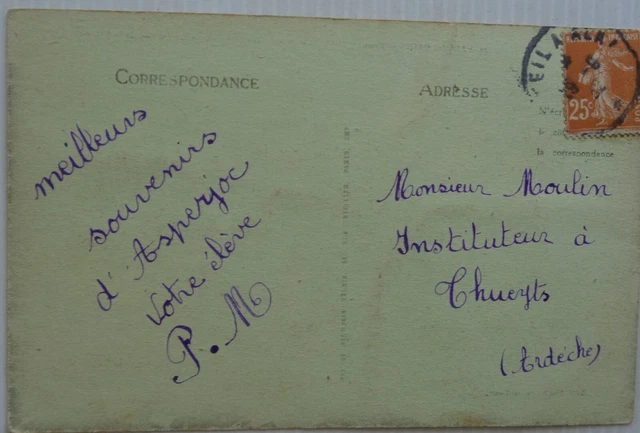 CORRESPONDANCE
meilleurs
souvenirs
d'Asperjoc
votre élève
P.M
ADRESSE
25c
la correspondance
Monsieur Moulin
Instituteur à
Thueyts
(Ardèche)